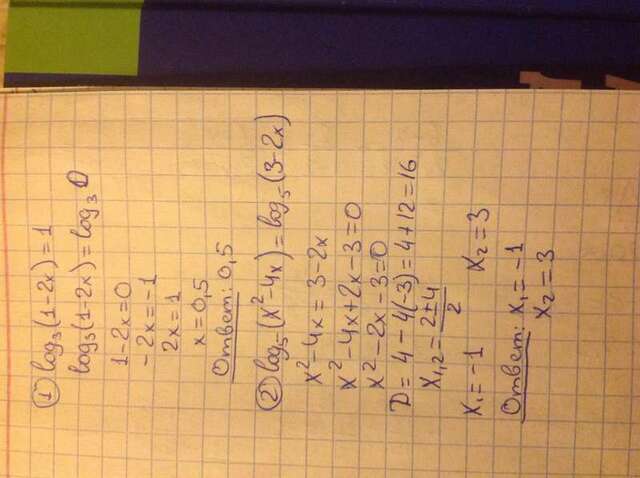 1) log₃(1-2x)=1
log₃(1-2x)=log₃0
1-2x=0
-2x=-1
2x=1
x=0,5
Ответ: 0,5
2) log₅(x²-4x)=log₅(3-2x)
x²-4x=3-2x
x²-4x+2x-3=0
x²-2x-3=0
D=4-4(-3)=4+12=16
x₁,₂=2±4/2
x₁=-1 x₂=3
Ответ: x₁=-1
x₂=3